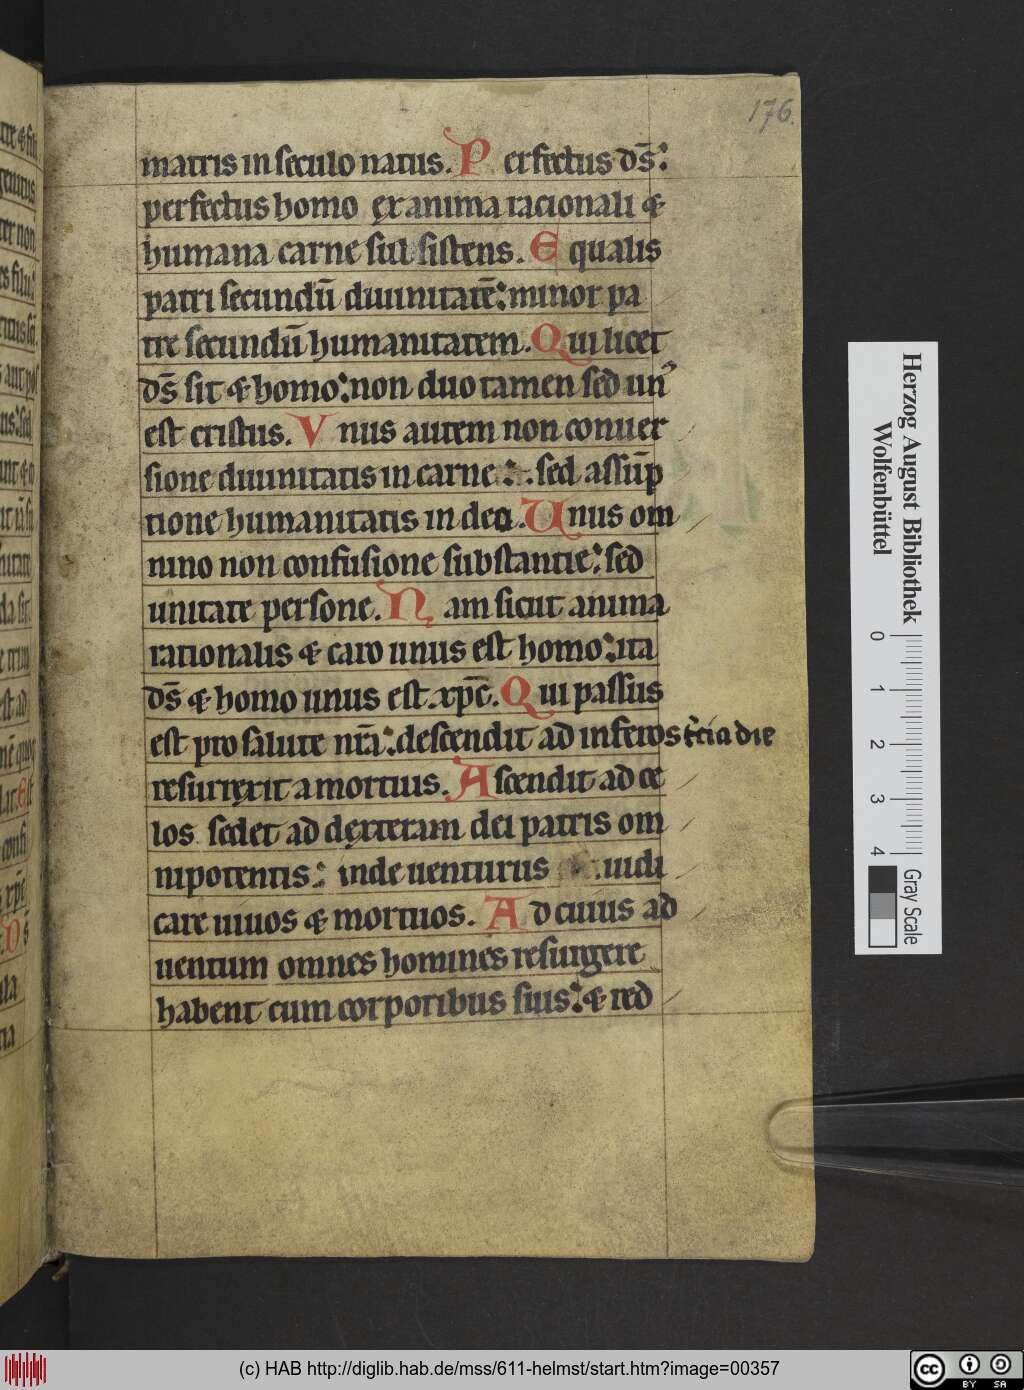 176.
matris in seculo natus. Perfectus ds̄:
perfectus homo ęx anima racionali &
humana carne subsistens. Equalis
patri secundū diuinitatē: minor pa
tre secundū humanitatem. Qui licet
ds̄ sit & homo: non duo tamen sed unꝰ
est cristus. Vnus autem non conuer
sione diuinitatis in carne: sed assūp
tione humanitatis in deo. Unus om
nino non confusione substantie: sed
unitate persone. Nam sicut anima
rationalis & caro unus est homo: ita
ds̄ & homo unus est. xp̄c. Qui passus
est pro salute nr̄a: descendit ad inferos t̄cia die
resurręxit a mortuis. Ascendit ad ce
los sedet ad dęxteram dei patris om
nipotentis: inde uenturus iudi
care uiuos & mortuos. Ad cuius ad
uentum omnes homines resurgere
habent cum corporibus suis: & red
Herzog August Bibliothek
Wolfenbüttel
0 1 2 3 4
Gray Scale
(c) HAB http://diglib.hab.de/mss/611-helmst/start.htm?image=00357
cc BY SA